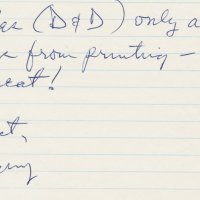 as (D&D) only a
s from printing –
eat!
ct,